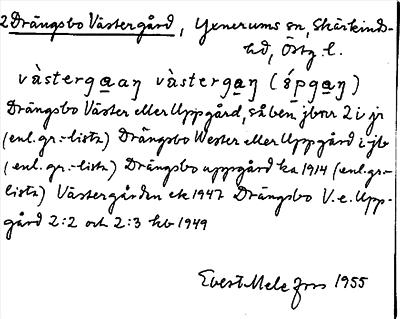 2 Drängsbo Västergård, Yxnerums sn, Skärkinds-
hd, Östg l.
vàstergaaŋ vàstergaŋ (ṣ́pgaŋ)
Drängsbo Väster eller Uppgård, så ben. jbnr 2 i jr
(enl. gr.-lista) Drängsbo Wester eller Uppgård i jb
(enl. gr.-lista) Drängsbo uppgård ka 1914 (enl. gr.-
lista) Västergården ek 1947 Drängsbo V. e. Upp-
gård 2:2 och 2:3 kb 1949
Evert Melefors 1955